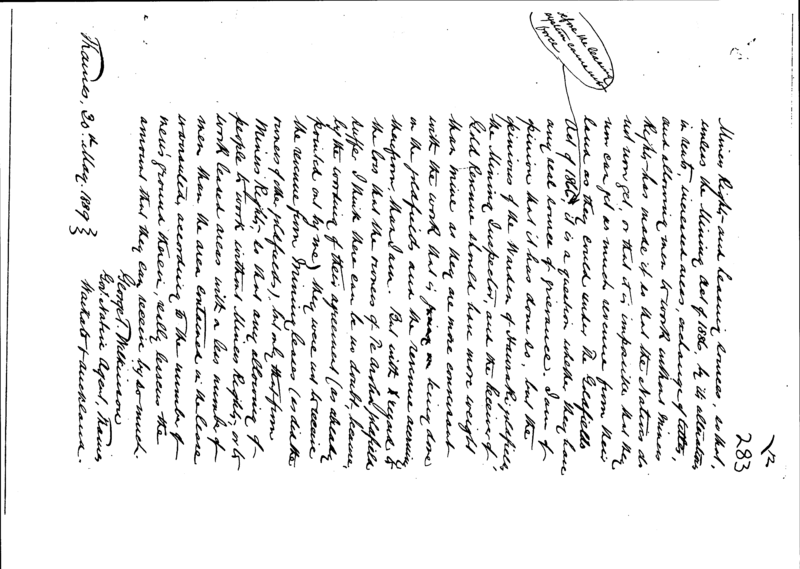 12
283
Miners Rights and leasing licenses, so that,
unless the Mining Act of 1886, by its alterations
in rent, increased area, exchange of titles,
and allowing men to work without Miners
Rights has made it so that the Natives do
not now get, or that it is impossible that they
can get as much revenue from their
land as they could under the Goldfields
Act of 1866, it is a question whether they have
before the leasing
system came into
force
any real source of grievance. I am of
opinion that it has done so, but the
opinions of the Warden of Hauraki goldfields,
the Mining Inspector, and the Receiver of
Gold Revenue should have more weight
than mine as they are more conversant
with the work that is going on being done
on the goldfields and the revenue accruing
therefrom, than I am. But with regard to
the loss that the owners of Te Aroha goldfield
suffer I think there can be no doubt, because,
by the wording of their agreement (as already
pointed out by me) they were not to receive
the revenue from Mining leases (as did the
owners of the goldfields), but only that from
Miners Rights, so that any allowing of
people to work without Miners Rights, or to
work leased areas with a less number of
men than the area contained in the lease
warranted, according to the number of
men's ground therein, really lessens the
amount that they can receive by so much.
George T. Wilkinson
Govt Native Agent, Thames
Waikato & Auckland.
Thames, 20th May. 1889